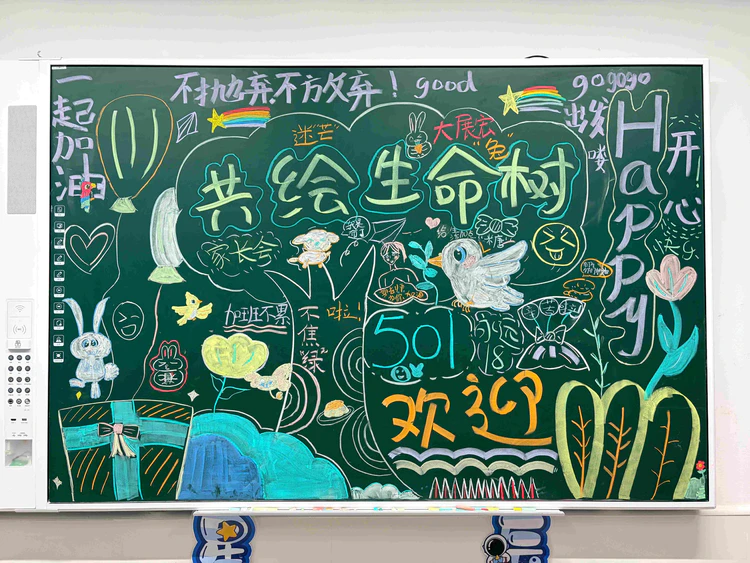 一起加油
不抛弃不放弃！good
gogogo
出发喽
Happy
开心
快乐
"迷芒"
大展宏"兔"
共绘生命树
家长会
加班不累
不焦"绿"啦！
501
欢迎